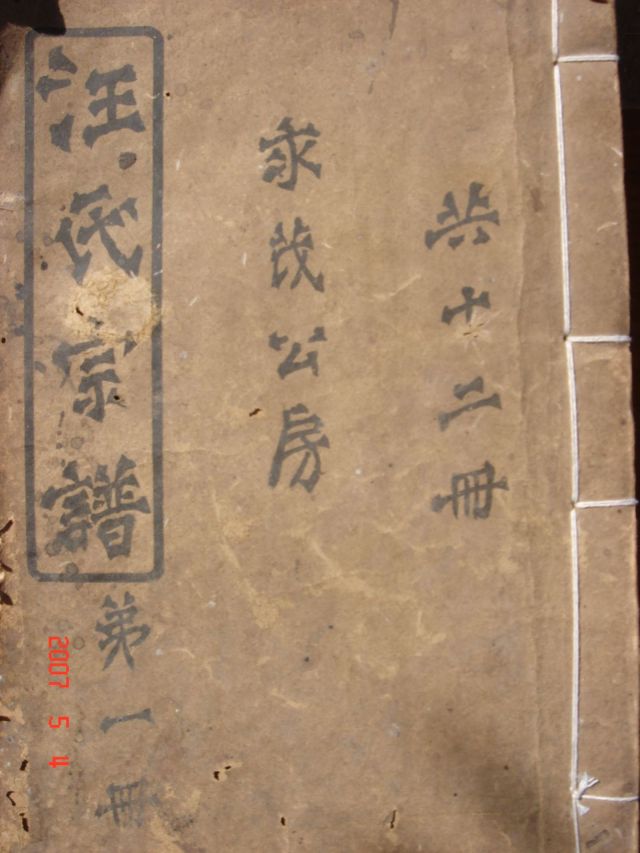 共十二冊
永茂公房
汪氏宗譜
第一冊
2007 5 4